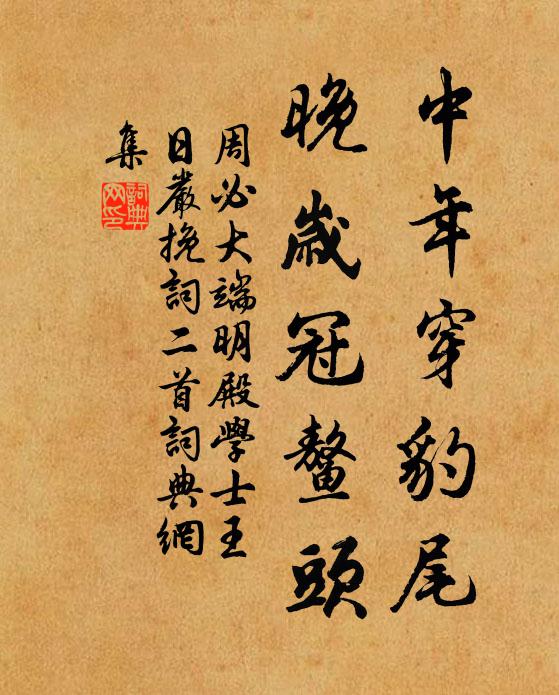 中年穿豹尾
晚歲冠鼇頭
周必大端明殿學士王
日嚴挽詞二首詞典網
集
詞典
网印